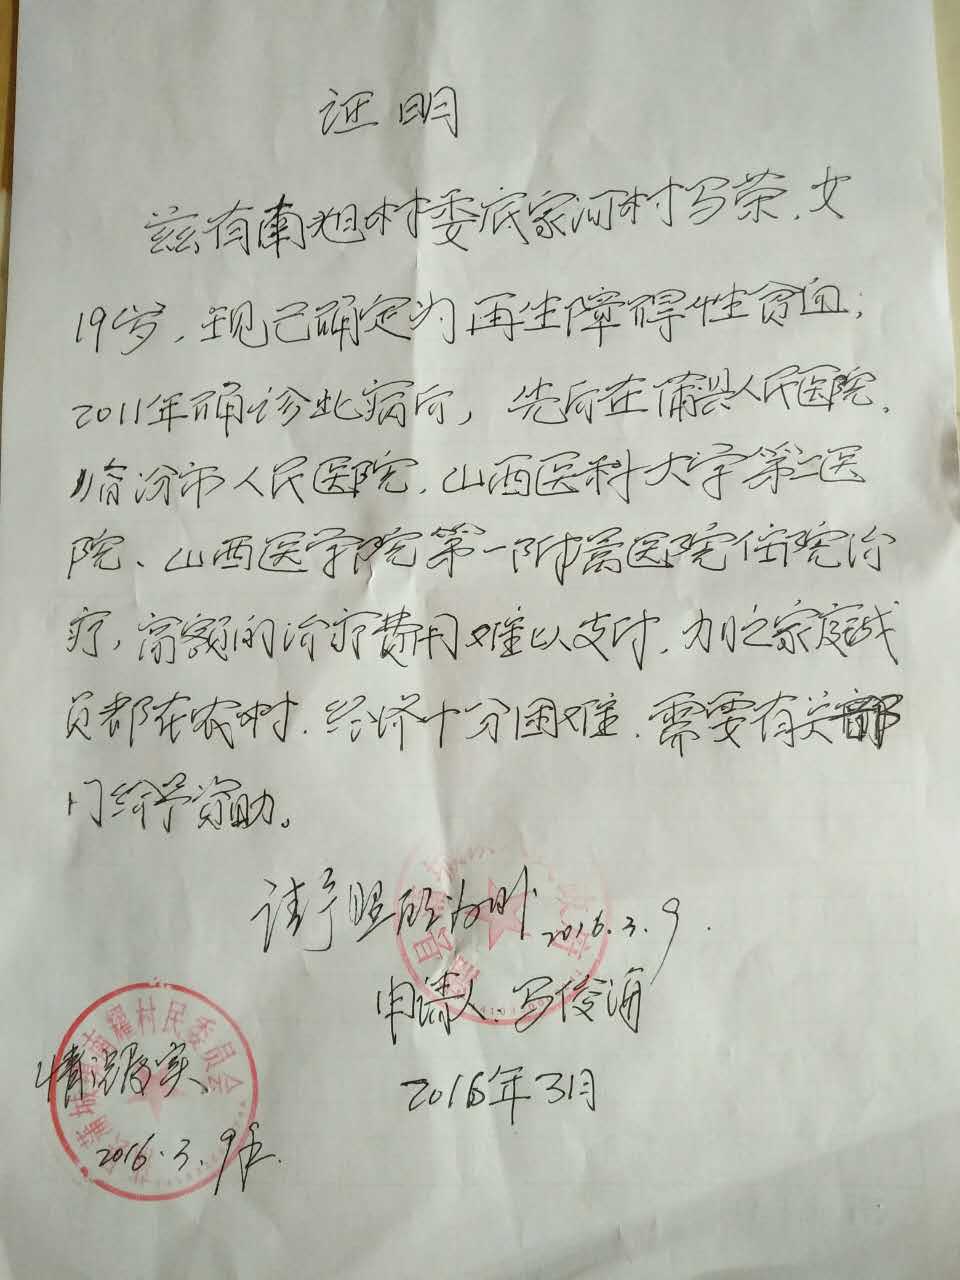 证明
兹有南旭村委底家河村马荣,女
19岁,现已确定为再生障碍性贫血,
2011年确诊此病后,先后在蒲县人民医院,
临汾市人民医院,山西医科大学第二医
院、山西医学院第一附属医院住院治
疗,高额的治疗费用难以支付,加之家庭成
员都在农村,经济十分困难,需要有关部
门给予资助。
请予照顾为盼
2016.3.9.
申请人:马俊海
2016年3月
情况属实
2016.3.9
蒲城 南耀村民委员会